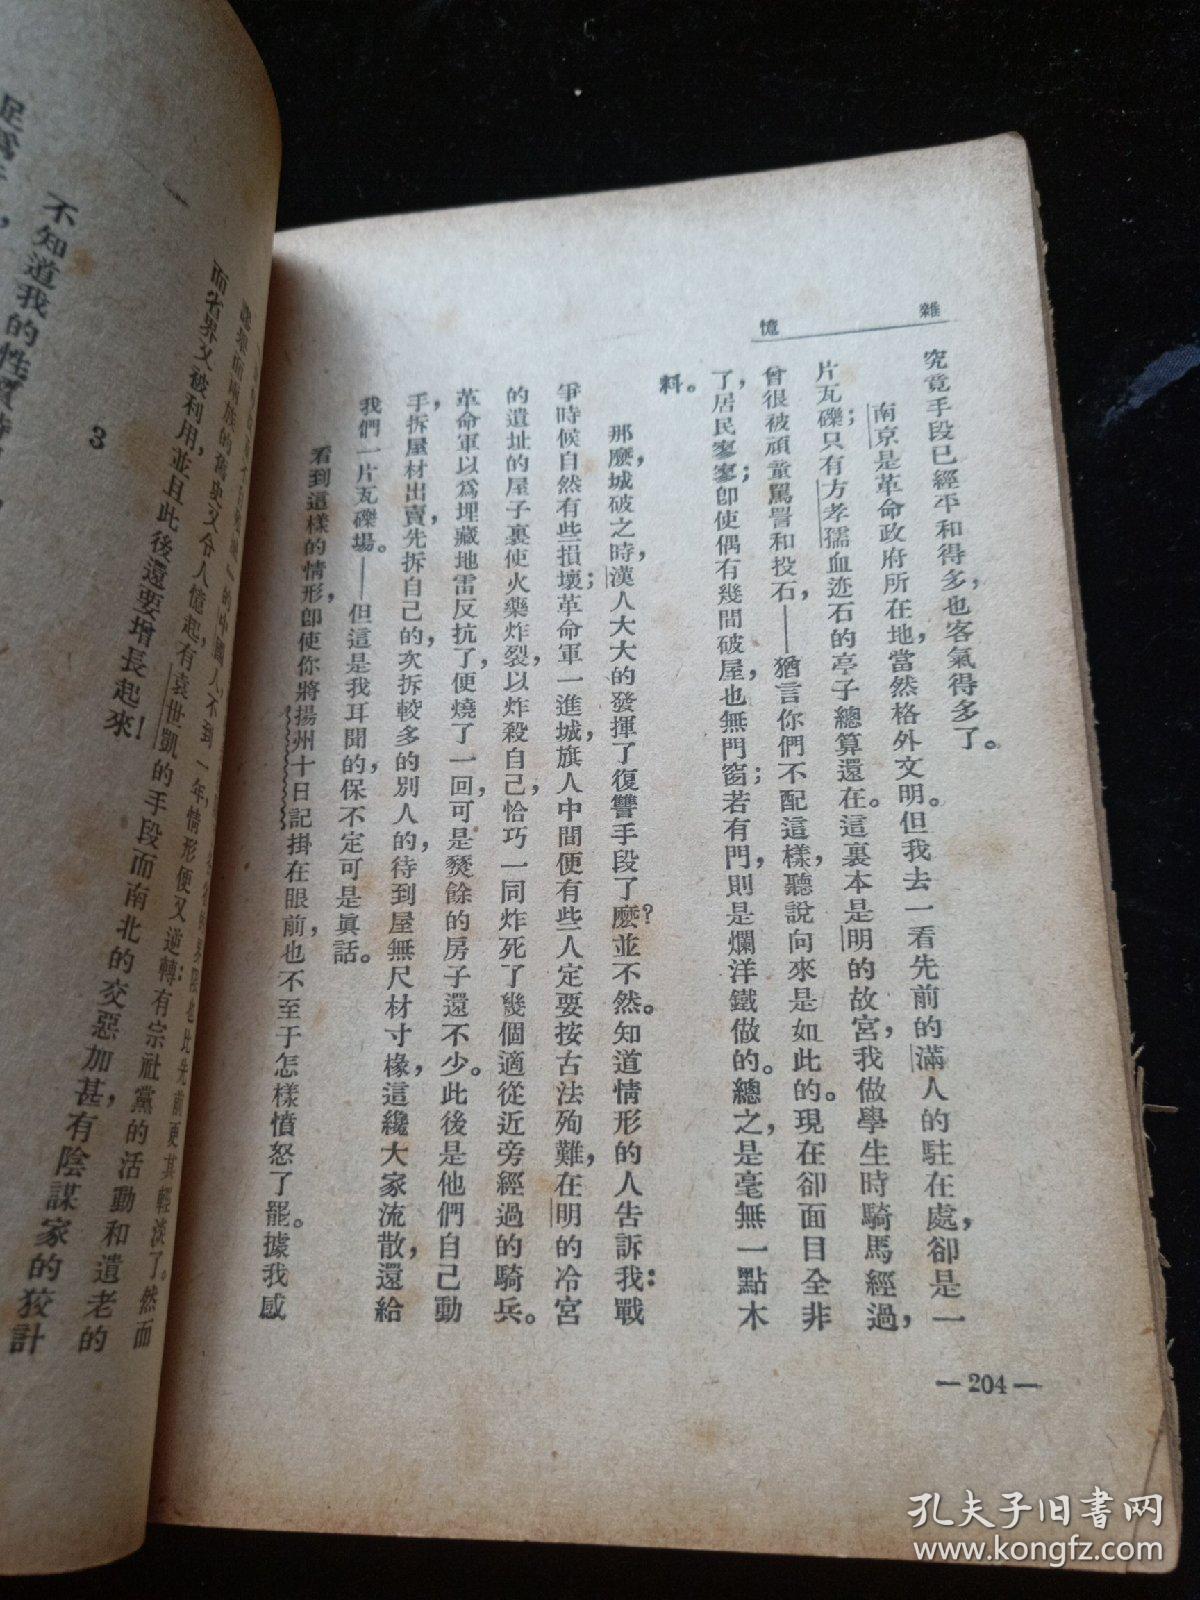 雜憶
究竟手段已經平和得多，也客氣得多了。
南京是革命政府所在地，當然格外文明。但我去一看先前的滿人的駐在處，卻是一
片瓦礫；只有方孝孺血迹石的亭子總算還在。這裏本是明的故宮，我做學生時騎馬經過，
曾很被頑童駡詈和投石——猶言你們不配這樣，聽說向來是如此的。現在卻面目全非
了，居民寥寥；即使偶有幾間破屋，也無門窗；若有門，則是爛洋鐵做的。總之，是毫無一點木
料。
那麽，城破之時，漢人大大的發揮了復讐手段了麽？並不然。知道情形的人告訴我：戰
爭時候自然有些損壞；革命軍一進城，旗人中間便有些人定要按古法殉難，在明的冷宮
的遺址的屋子裏使火藥炸裂，以炸殺自己，恰巧一同炸死了幾個適從近旁經過的騎兵。
革命軍以爲埋藏地雷反抗了，便燒了一回，可是燹餘的房子還不少。此後是他們自己動
手，拆屋材出賣，先拆自己的，次拆較多的別人的，待到屋無尺材寸椽，這纔大家流散，還給
我們一片瓦礫場。——但這是我耳聞的，保不定可是眞話。
看到這樣的情形，即使你將揚州十日記掛在眼前，也不至于怎樣憤怒了罷。據我感
—204—
的中國人，
比先前更其輕淡了。然而
不到一年，情形便又逆轉：有宗社黨的活動和遺老的
而兩族的舊史又令人憶起，有袁世凱的手段而南北的交惡加甚，有陰謀家的狡計
而省界又被利用，並且此後還要增長起來！
3
不知道我的性質
孔夫子旧书网
www.kongfz.com